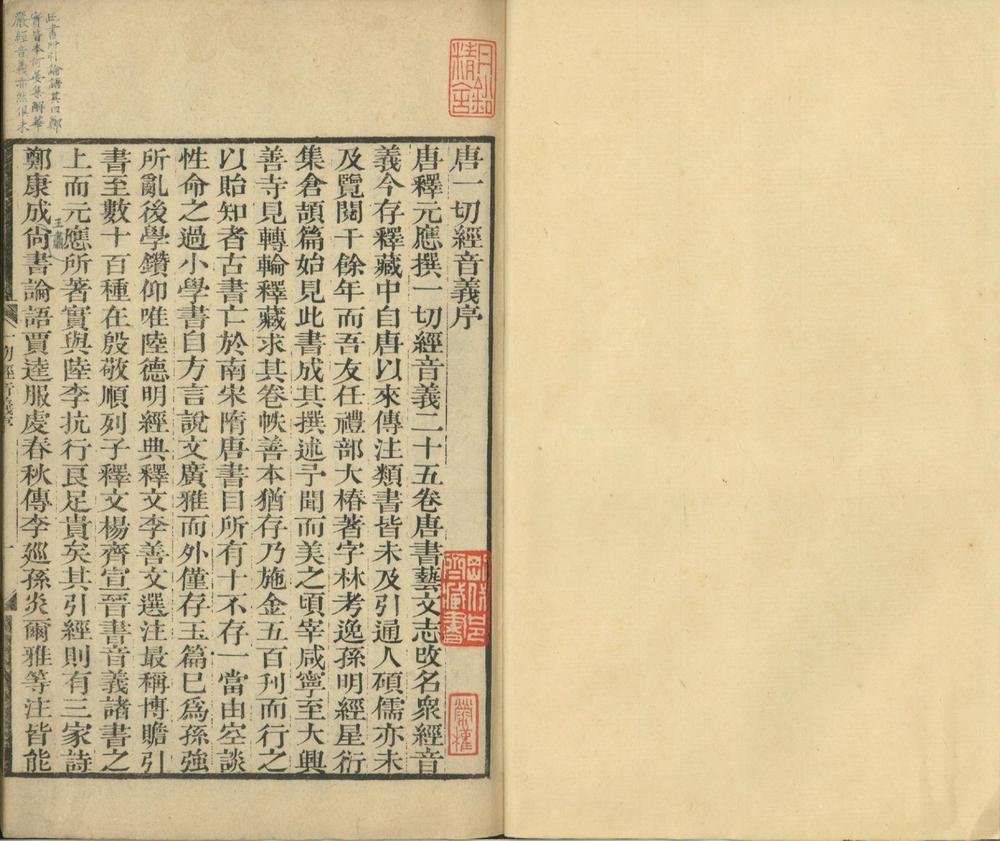 唐一切經音義序
唐釋元應撰一切經音義二十五卷唐書藝文志改名衆經音
義今存釋藏中自唐以來傳注類書皆未及引通人碩儒亦未
及覽閱千餘年而吾友任禮部大椿著字林考逸孫明經星衍
集倉頡篇始見此書成其撰述予聞而美之頃宰咸寧至大興
善寺見轉輪釋藏求其卷帙善本猶存乃施金五百刊而行之
以貽知者古書亡於南宋隋唐書目所有十不存一當由空談
性命之過小學書自方言說文廣雅而外僅存玉篇巳爲孫強
所亂後學鑽仰唯陸德明經典釋文李善文選注最稱博贍引
書至數十百種在殷敬順列子釋文楊齊宣晉書音義諸書之
上而元應所著實與陸李抗行良足貴矣其引經則有三家詩
鄭康成尙書論語賈逵服虔春秋傳李廵孫炎爾雅等注皆能
王肅
此書所引論語其曰鄭
實皆本何晏集解華
嚴經音義亦然俱未
一切經音義序
一
月
精舍
齋藏書